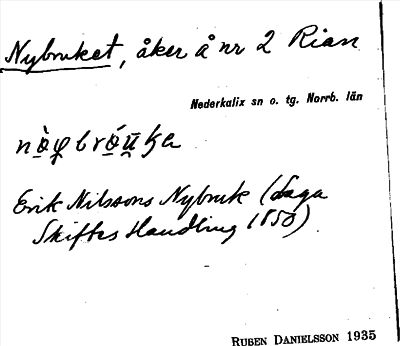 Nybruket, åker å nr 2 Rian
Nederkalix sn o. tg. Norrb. län
Erik Nilssons Nybruk (Laga
Skiftes Handling 1850).
RUBEN DANIELSSON 1935